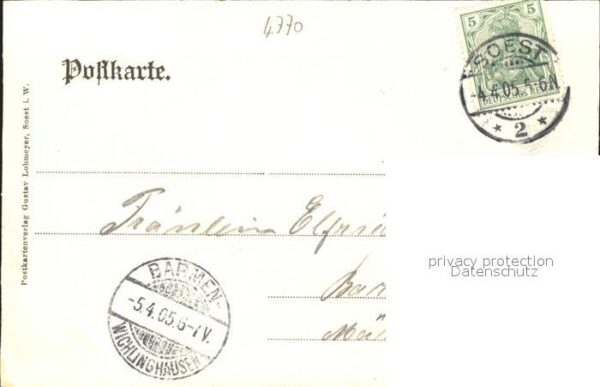 4770
Postkarte.
5
DEUTSCHES REICH
SOEST
-4.4.05.5-6N
* 2 *
Postkartenverlag Gustav Lohmeyer, Soest i. W.
Fräulein Elfrie
Bar
BARMEN-
-5.4.05.6-7V.
WICHLINGHAUSEN
privacy protection
Datenschutz